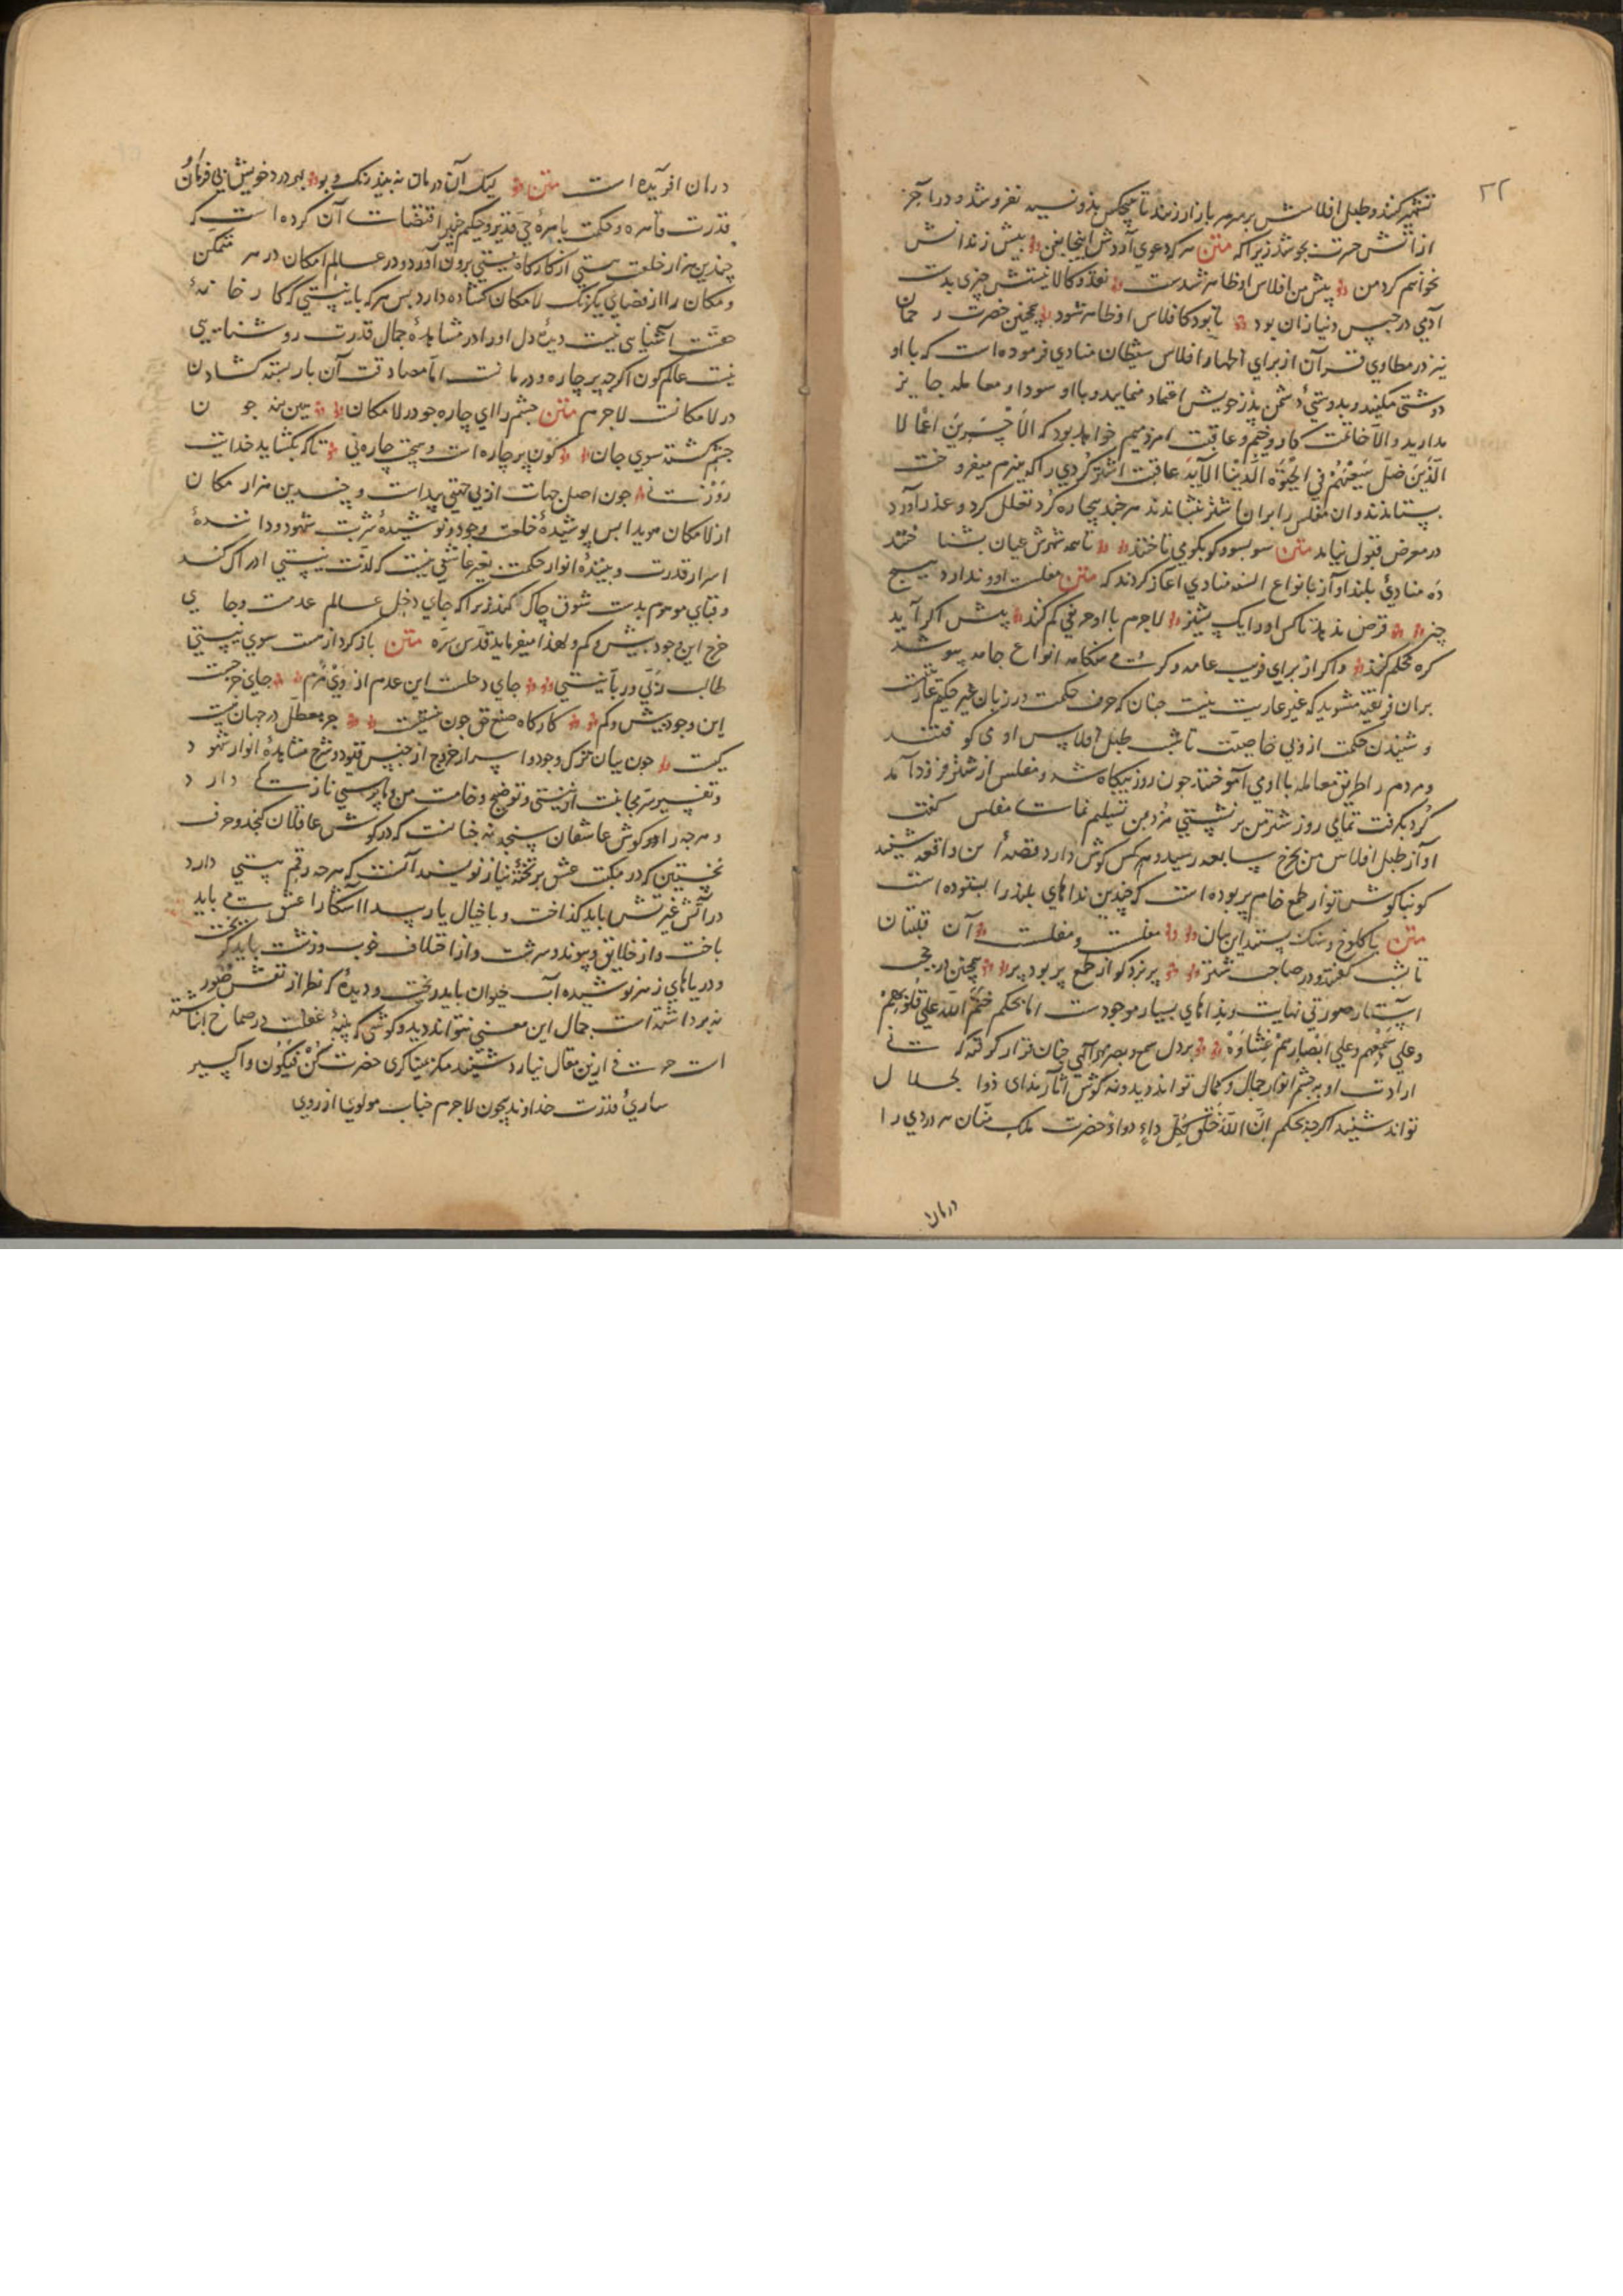 ۲۲
تشهیر کنند و طبل افلاسش بر سر هر بازار زنند تا هیچکس بدو نسیه نفروشد و در آخر
از آتش حسرت بجوشد زیرا که متن هر که دعوی آردش اینجا بفن پیش زندانش
نخواهم کرد من پیش من افلاس او ظاهر شدست نقد و کالا نیستش چیزی بدست
آدمی در حبس دنیا زان بود تا بود کافلاس او ظاهر شود همچنین حضرت رحمان
نیز در مطاوی قرآن از برای اظهار افلاس شیطان منادی فرموده است که با او
دوستی مکنید و بدوستی دشمن پدر خویش اعتماد منمایید و با او سودا و معامله جایز
مدارید و الا خاتمت کار وخیم و عاقبت امر ذمیم خواهد بود که الاخسرین اعمالا
الذین ضل سعیهم فی الحیوة الدنیا الآیه عاقبت اشتر کردی را که هیزم میفروخت
بستاندند و آن مفلس را بر آن اشتر بنشاندند هر چند بیچاره کرد تعلل کرد و عذر آورد
در معرض قبول نیامد متن سو بسو و کو بکو می تاختند تا همه شهرش عیان بشناختند
ده منادی بلند آواز بانواع السنه منادی آغاز کردند که متن مفلست او و ندارد هیچ
چیز قرض ندهد تا کس او را یک پشیز لاجرم با او حریفی کم کنند پیش اگر آید
گره محکم کنند و اگر از برای فریب عامه و هنگامه انواع جامه پوشد
بران فریفته مشوید که غیر عاریت نیست چنان که حرف حکمت در زبان غیر حکیم عاریت
و شنیدن حکمت از وی خاصیت تا شب طبل افلاس او می کوفتند
و مردم را طریق معامله با او می آموختند چون روز بیگاه شد و مفلس از شتر فرود آمد
کرد بگرفت تمامی روز شتر من بر نشستی مزد من تسلیم نمای مفلس گفت
آواز طبل افلاس من بچرخ سابعه رسید و هر کس گوش دارد قصه من و واقعه شنید
گوئیا گوش تو از طمع خام پر بوده است که چندین نداهای بلند را نشنوده است
متن تا کلوخ و سنگ بشنید این بیان مفلست و مفلست آن قلتبان
تا بشب گفتند و در صاحب شتر بر نزد کو از طمع پر بود پر همچنین در حجب
استار صور بی نهایت و نداهای بسیار موجودست اما بحکم ختم الله علی قلوبهم
و علی سمعهم و علی ابصارهم غشاوه بر دل سمع و بصر مهر الهی چنان قرار گرفته که تا بی
ارادت او نه چشم انوار جمال و کمال تواند دید و نه گوش آثار ندای ذوالجلال
تواند شنید اگر چه بحکم ان الله خلق لکل داء دواء حضرت ملک منان هر دردی را
درمان
درمان آفریده است متن لیک آن درمان نه بیند رنگ و بو بهر درد خویش بی فرمان او
قدرت قاهره و حکمت باهره حی قدیر و حکیم خبیر اقتضات آن کرده است که
چندین هزار خلعت هستی از کارگاه نیستی برون آورد و در عالم امکان در هر متمکن
و مکان را از فضای یکرنگ لامکان گشاده دارد پس هر که با نیستی که کارخانه
هست آشنایی نیست دیده دل او را در مشاهده جمال قدرت روشنایی
نیست عالم کون اگر چه پر چاره و درمانست اما مصادقت آن بار بسته گشادن
در لامکانست لاجرم متن چشم را ای چاره جو در لامکان هین بنه چون
چشم کشته سوی جان کون پر چاره است و هیچت چاره نی تا که نگشاید خدایت
روزنی چون اصل جهات از بی جهتی پیداست و چندین هزار مکان
از لامکان هویدا پس پوشیده خلعت وجود و نوشیده شربت شهود و داننده
اسرار قدرت و بیننده انوار حکمت بغیر عاشقی نیست که لذت نیستی ادراک کند
و قبای موهوم بدست شوق چاک کند زیرا که جای دخل عالم عدمست و جای
خرج این وجود بیش و کم و لهذا میفرماید قدس سره متن باز گرد از هست سوی نیستی
طالب ربی و ربانیستی جای دخلست این عدم از وی مرم جای خرجست
این وجود بیش و کم کارگاه صنع حق چون نیستیست جز معطل در جهان هست
کیست چون بیان ترک وجود و اسرار خروج از حبس قیود و شرح مشاهده انوار شهود
و تفسیر سر مجانبت از نیستی و توضیح وخامت من و ما پرستی نازکست دارد
و هر چه در او گوش عاشقان سنجد نه چنانست که در گوش عاقلان گنجد و حرف
نخستین که در مکتب عشق بر تخته نیاز نویسند آنست که هر چه رقم هستی دارد
در آتش غیرتش باید گداخت و با خیال یار پیدا آشکارا عشق می باید
باخت و از خلایق و پیوند و سرشت و از اختلاف خوب و زشت باید گریخت
و دریاهای زهر نوشیده آب حیوان باید ریخت و دیده که نظر از نقش صور
نه برداشته است جمال این معنی نتواند دید و گوشی که پنبه غفلت در صماخ انباشته
است حرفی ازین مقال نیارد شنید مگر میناگری حضرت کن فیکون و اکسیر
سازی قدرت خداوند بیچون لاجرم جناب مولوی از روی